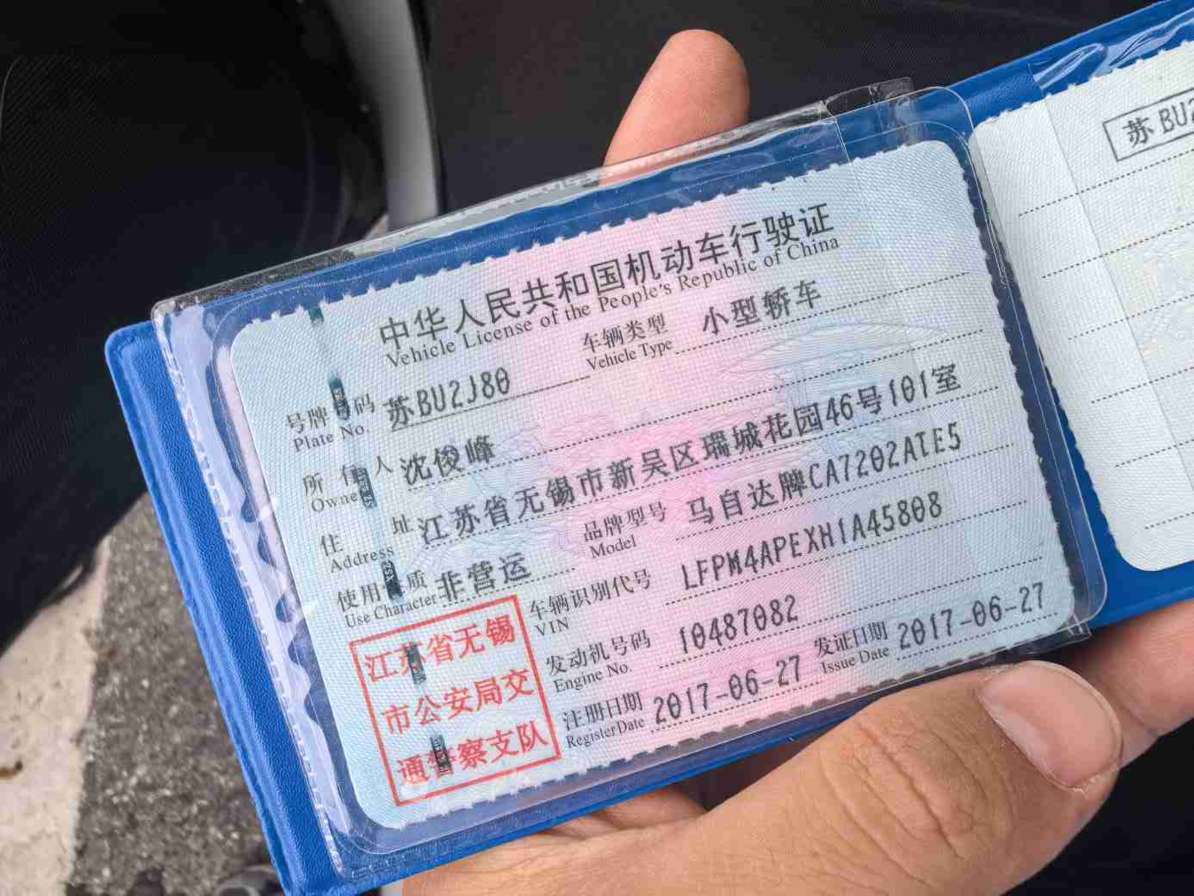 中华人民共和国机动车行驶证
Vehicle License of the People's Republic of China
号牌号码 苏BU2J80 车辆类型 小型轿车
Plate No. Vehicle Type
所有人 沈俊峰
Owner
住址 江苏省无锡市新吴区瑞城花园46号101室
Address
使用性质 非营运 品牌型号 马自达牌CA7202ATE5
Use Character Model
车辆识别代号 LFPM4APEXH1A45808
VIN
发动机号码 10487082
Engine No.
注册日期 2017-06-27 发证日期 2017-06-27
Register Date Issue Date
江苏省无锡
市公安局交
通警察支队
苏BU2